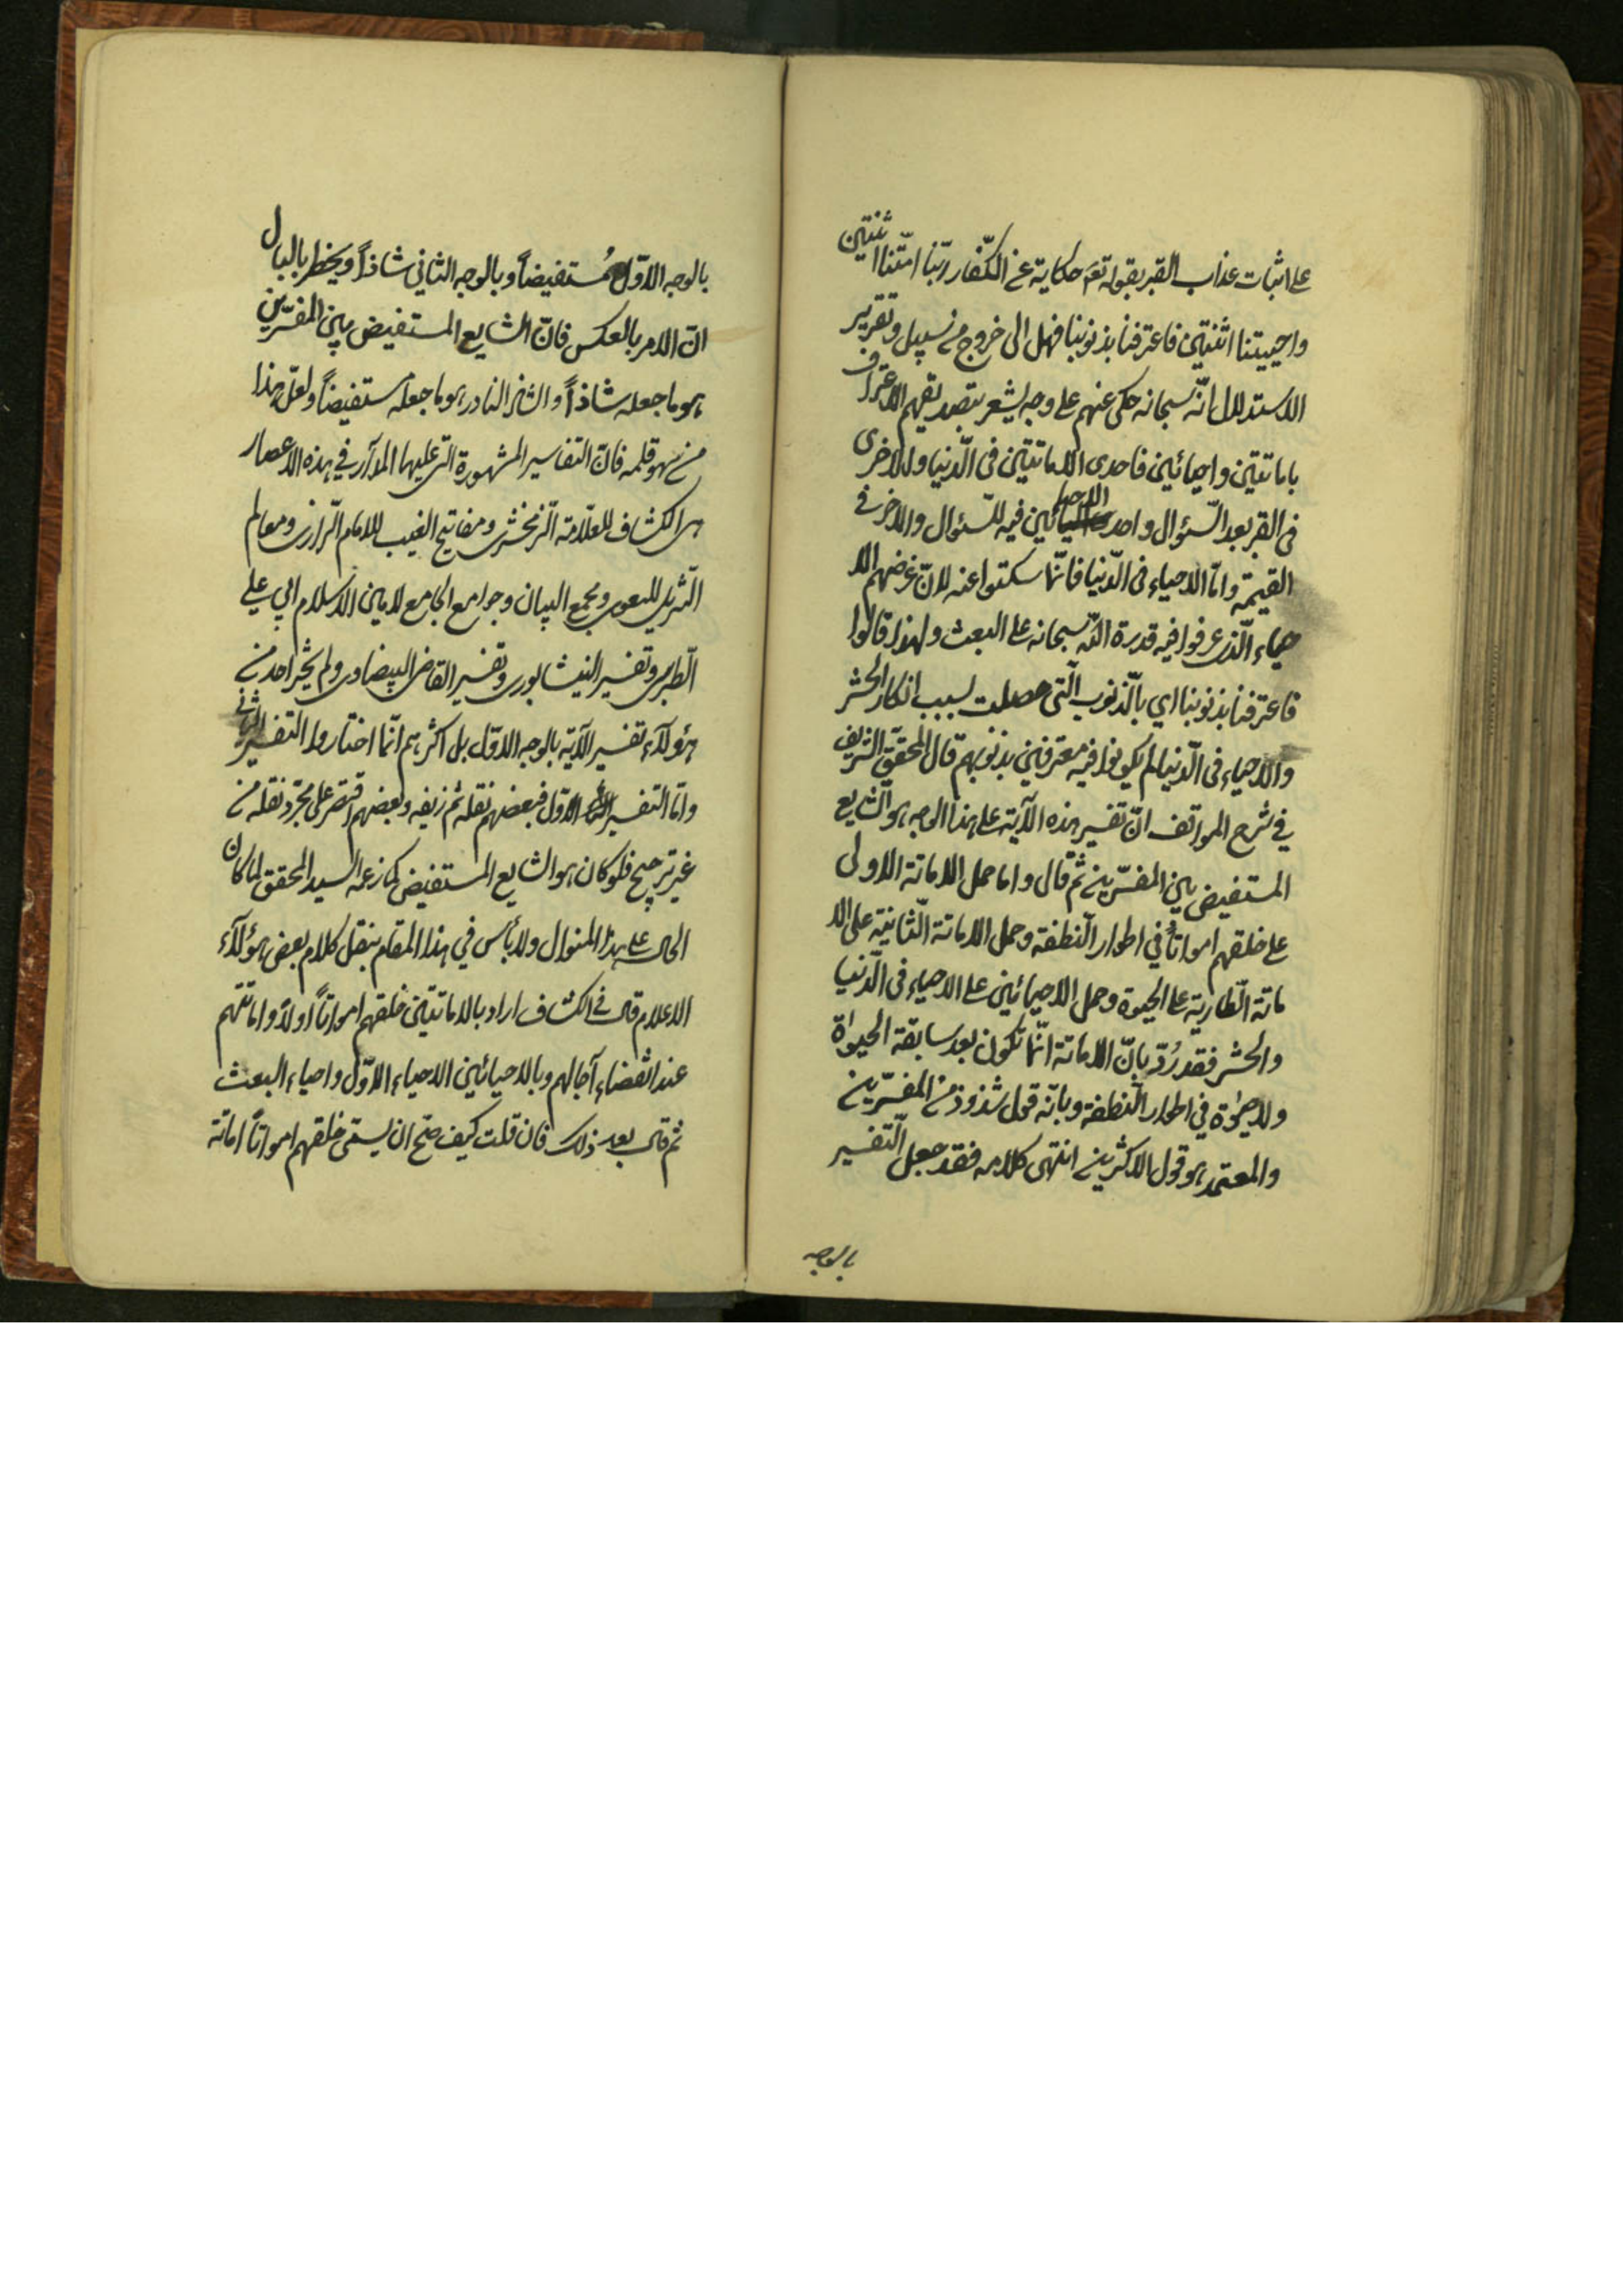 على اثبات عذاب القبر بقوله تع حكاية عن الكفّار ربّنا امتّنا اثنتين
واحييتنا اثنتين فاعترفنا بذنوبنا فهل الى خروج من سبيل وتقرير
الاستدلال انّه سبحانه حكى عنهم على وجه يشعر بتصديقهم الاعتراف
باماتتين واحيائين فاحدى الاماتتين فى الدّنيا والاخرى
فى القبر بعد السّئوال واحد الاحيائين فيه للسّئوال والاخر فى
القيمة وامّا الاحياء فى الدّنيا فانّما سكتوا عنه لانّ غرضهم الا
حياء الّذى عرفوا فيه قدرة اللّه سبحانه على البعث ولهذا قالوا
فاعترفنا بذنوبنا اي بالّذنوب الّتى حصلت بسبب انكار الحشر
والاحياء فى الّدنيا لم يكونوا فيه معترفين بذنوبهم قال المحقّق الشّريف
في شرح المواقف انّ تفسير هذه الآية على هذا الوجه هو الشّايع
المستفيض بين المفسّرين ثم قال واما حمل الاماتة الاولى
على خلقهم امواتاً في اطوار النّطفة وحمل الاماتة الثّانية على الا
ماتة الطّارية على الحيوة وحمل الاحيائين على الاحياء فى الّدنيا
والحشر فقد رُدّ بانّ الاماتة انّما تكون بعد سابقة الحيوٰة
ولا حيوٰة في اطوار النّطفة وبانّه قول شذوذ من المفسّرين
والمعتمد هو قول الاكثرين انتهى كلامه فقد جعل التّفسير
بالوجه
بالوجه الاوّل مُستفيضاً وبالوجه الثاني شاذاً ويخطر بالبال
انّ الامر بالعكس فانّ الشايع المستفيض بين المفسّرين
هو ما جعله شاذاً والشاذ النادر هو ما جعله مستفيضاً ولعلّ هذا
من سهو قلمه فانّ التفاسير المشهورة الّتى عليها المدار في هذه الاعصار
هى الكشاف للعلّامة الّزمخشرى ومفاتيح الغيب للامام الّرازى ومعالم
التّنزيل للبغوى ومجمع البيان وجوامع الجامع لامين الاسلام ابي علي
الّطبرسى وتفسير النيشابورى وتفسير القاضى البيضاوى ولم يختر احد من
هؤلآء تفسير الآية بالوجه الاوّل بل اكثرهم انّما اختاروا التفسير الثانى
وامّا التفسير الاوّل فبعضهم نقله ثم زيفه وبعضهم اقتصر على مجّرد نقله من
غير ترجيح فلو كان هو الشايع المستفيض كما زعمه السيد المحقق لما كان
الحال على هذا المنوال ولا بأس في هذا المقام بنقل كلام بعض هؤلآء
الاعلام قال في الكشاف اراد بالاماتتين خلقهم امواتاً اولاً واماتتهم
عند انقضاء آجالهم وبالاحيائين الاحياء الاوّل واحياء البعث
ثم قال بعد ذلك فان قلت كيف صّح ان يسمّى خلقهم امواتاً اماتة